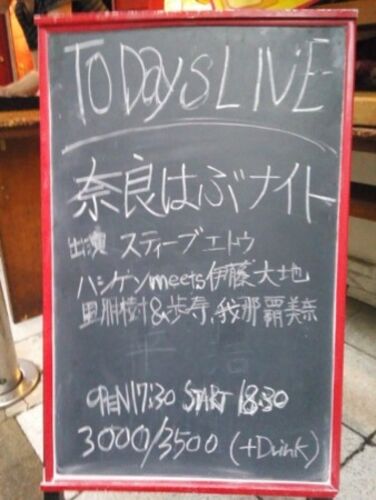 TODAYS LIVE
奈良はぶナイト
出演 スティーブエトウ
ハシケンmeets伊藤大地
里朋樹&歩寿、我那覇美奈
OPEN 17:30 START 18:30
3000/3500 (+Drink)